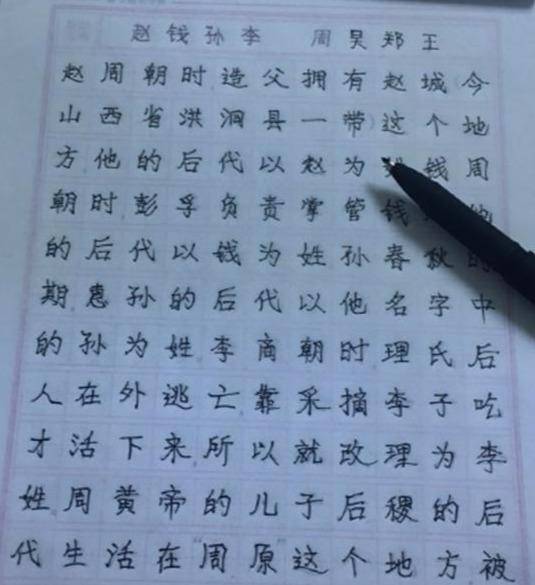 赵钱孙李 周吴郑王
赵周朝时造父拥有赵城(今
山西省洪洞县一带)这个地
方他的后代以赵为 钱周
朝时彭孚负责掌管钱 他
的后代以钱为姓孙春秋时
期惠孙的后代以他名字中
的孙为姓李商朝时理氏后
人在外逃亡靠采摘李子吃
才活下来所以就改理为李
姓周黄帝的儿子后稷的后
代生活在"周原"这个地方被